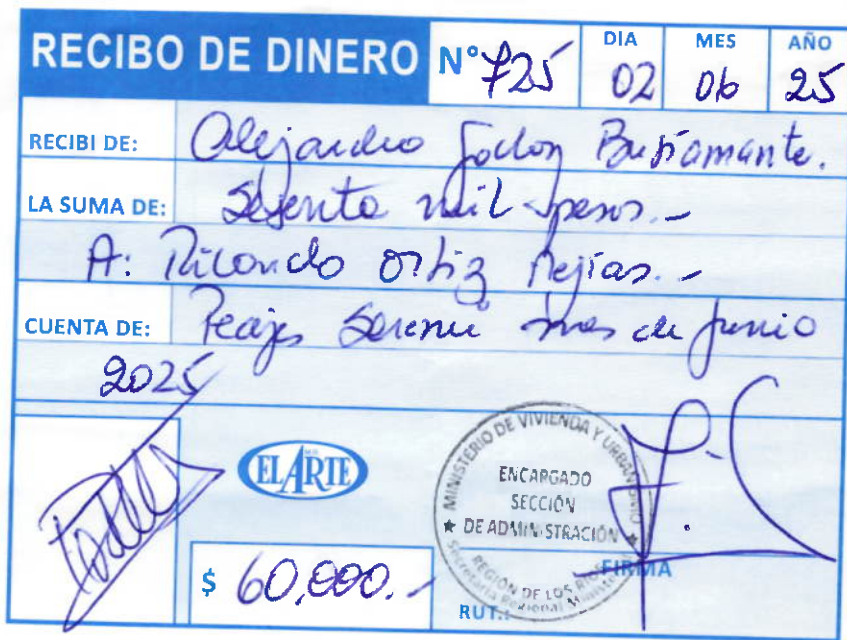 RECIBO DE DINERO N° 725 DIA 02 MES 06 AÑO 25
RECIBI DE: Alejandro Bustamante.
LA SUMA DE: Sesenta mil pesos.-
A: Ricardo Ortiz Mejías.-
CUENTA DE: Peajes Seremi mes de junio
2025
EL ARTE
MINISTERIO DE VIVIENDA Y URBANISMO
ENCARGADO
SECCIÓN
★ DE ADMINISTRACIÓN ★
REGIÓN DE LOS RIOS
Secretaría Regional Ministerial
$ 60,000.-
FIRMA
RUT.: